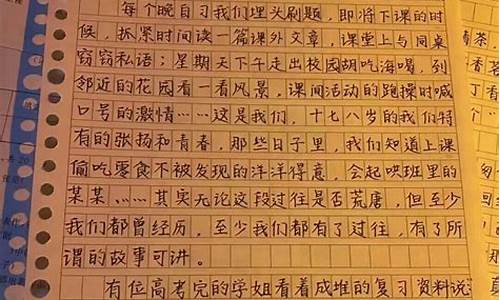 每个晚自习我们埋头刷题，即将下课的时
候，抓紧时间读一篇课外文章，课堂上与同桌
窃窃私语；星期天下午走出校园胡吃海喝，到
邻近的花园看一看风景，课间活动的跑操时喊
口号的激情……这是我们，十七八岁的我们特
有的张扬和青春，那些日子里，我们知道上课
偷吃零食不被发现的洋洋得意，会起哄班里的
某某……其实无论这段过往是否荒唐，但至少
我们都曾经历，至少我们都有了过往，有了所
谓的故事可讲。
有位高考完的学姐看着成堆的复习资料说